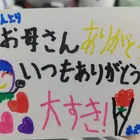 お母さん ありがとう
いつもありがとう
大すき!